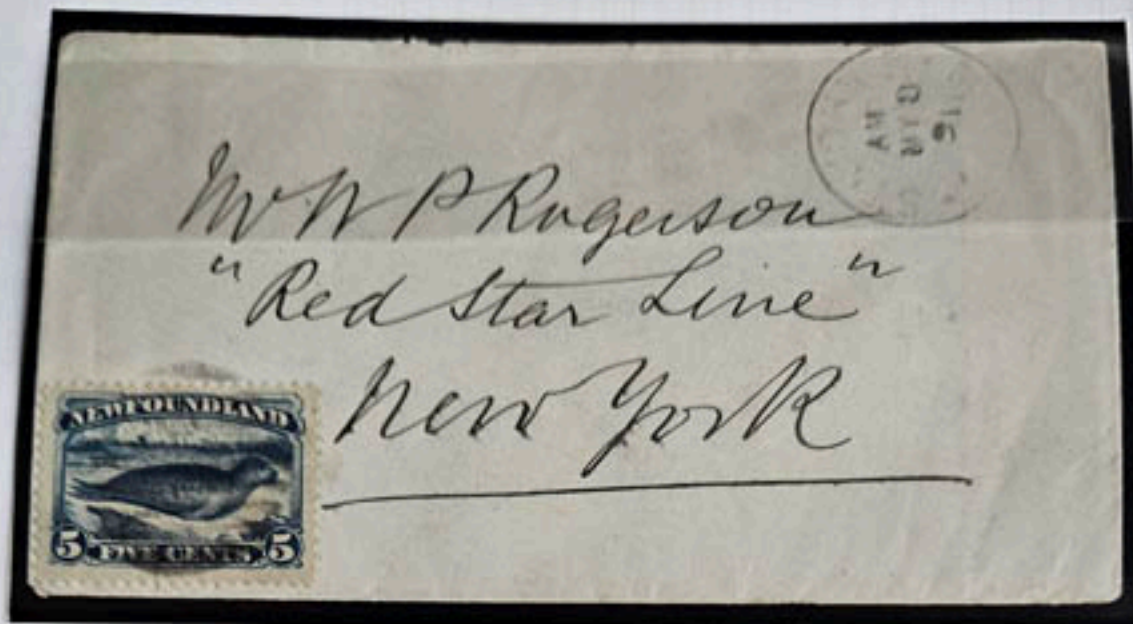 AM
MY 8
91
Mr W P Rogerson
"Red Star Line"
New York
NEWFOUNDLAND
5 FIVE CENTS 5